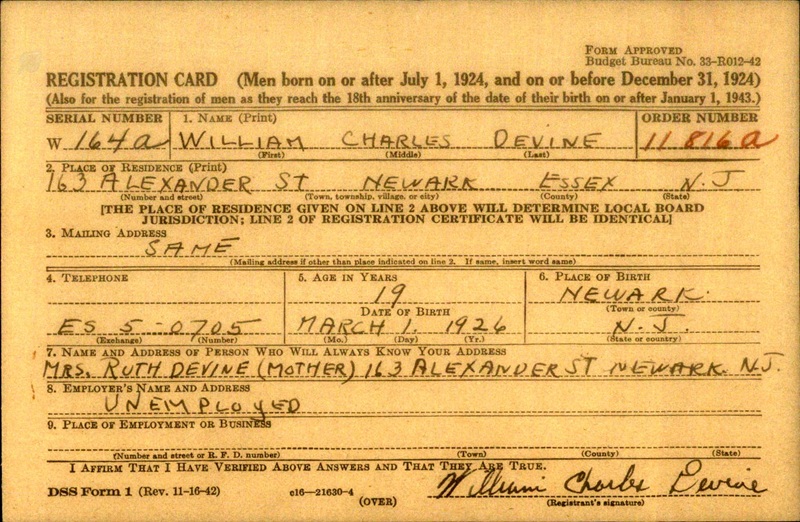 FORM APPROVED
Budget Bureau No. 33-R012-42
REGISTRATION CARD (Men born on or after July 1, 1924, and on or before December 31, 1924)
(Also for the registration of men as they reach the 18th anniversary of the date of their birth on or after January 1, 1943.)
SERIAL NUMBER 1. NAME (Print) ORDER NUMBER
W 164a WILLIAM CHARLES DEVINE 11816a
(First) (Middle) (Last)
2. PLACE OF RESIDENCE (Print)
163 ALEXANDER ST NEWARK ESSEX N.J
(Number and street) (Town, township, village, or city) (County) (State)
[THE PLACE OF RESIDENCE GIVEN ON LINE 2 ABOVE WILL DETERMINE LOCAL BOARD
JURISDICTION; LINE 2 OF REGISTRATION CERTIFICATE WILL BE IDENTICAL]
3. MAILING ADDRESS
SAME
(Mailing address if other than place indicated on line 2. If same, insert word same)
4. TELEPHONE 5. AGE IN YEARS 6. PLACE OF BIRTH
19 NEWARK.
DATE OF BIRTH (Town or county)
ES 5-0705 MARCH 1. 1926 N.J.
(Exchange) (Number) (Mo.) (Day) (Yr.) (State or country)
7. NAME AND ADDRESS OF PERSON WHO WILL ALWAYS KNOW YOUR ADDRESS
MRS. RUTH DEVINE (MOTHER) 163 ALEXANDER ST NEWARK. N.J.
8. EMPLOYER'S NAME AND ADDRESS
UNEMPLOYED
9. PLACE OF EMPLOYMENT OR BUSINESS
(Number and street or R. F. D. number) (Town) (County) (State)
I AFFIRM THAT I HAVE VERIFIED ABOVE ANSWERS AND THAT THEY ARE TRUE.
William Charles Devine
DSS Form 1 (Rev. 11-16-42) c16-21630-4 (OVER) (Registrant's signature)